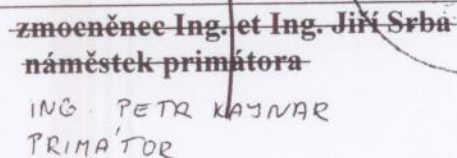 zmocněnec Ing. et Ing. Jiří Srba
náměstek primátora
ING. PETR KAJNAR
PRIMÁTOR